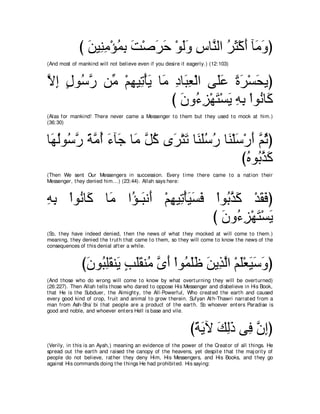 ( وَمَآ أَكْثَرُ النَّاسِ وَلَوْ حَرَصْتَ بِمُؤْمِنِينَ )
(And most of mankind will not believe even if you desire it eagerly.) (12:103)
(يحَسْرَةً عَلَى الْعِبَادِ مَا يَأْتِيهِمْ مِّن رَّسُولٍ إِلاَّ
كَانُواْ بِهِ يَسْتَهْزِءُونَ )
(Alas for mankind! There never came a Messenger to them but they used to mock at him.)
(36:30)
(ثُمَّ أَرْسَلْنَا رُسُلَنَا تَتْرَى كُلَّ مَا جَآءَ أُمَّةً رَّسُولُهَا
كَذَّبُوهُ)
(Then We sent Our Messengers in succession. Every time there came to a nation their
Messenger, they denied him...) (23:44). Allah says here:
(فَقَدْ كَذَّبُواْ فَسَيَأْتِيهِمْ أَنبَـؤُا مَا كَانُواْ بِهِ
يَسْتَهْزِءُونَ )
(So, they have indeed denied, then the news of what they mocked at will come to them.)
meaning, they denied the truth that came to them, so they will come to know the news of the
consequences of this denial after a while.
(وَسَيَعْلَمْ الَّذِينَ ظَلَمُواْ أَىَّ مُنقَلَبٍ يَنقَلِبُونَ)
(And those who do wrong will come to know by what overturning they will be overturned)
(26:227). Then Allah tells those who dared to oppose His Messenger and disbelieve in His Book,
that He is the Subduer, the Almighty, the All-Powerful, Who created the earth and caused
every good kind of crop, fruit and animal to grow therein. Sufyan Ath-Thawri narrated from a
man from Ash-Sha`bi that people are a product of the earth. So whoever enters Paradise is
good and noble, and whoever enters Hell is base and vile.
(إِنَّ فِى ذَلِكَ لأَيَةً)
(Verily, in this is an Ayah,) meaning an evidence of the power of the Creator of all things. He
spread out the earth and raised the canopy of the heavens, yet despite that the majority of
people do not believe, rather they deny Him, His Messengers, and His Books, and they go
against His commands doing the things He had prohibited. His saying: